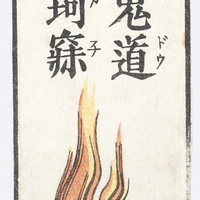 鬼道 ドウ
珂寐 カ子